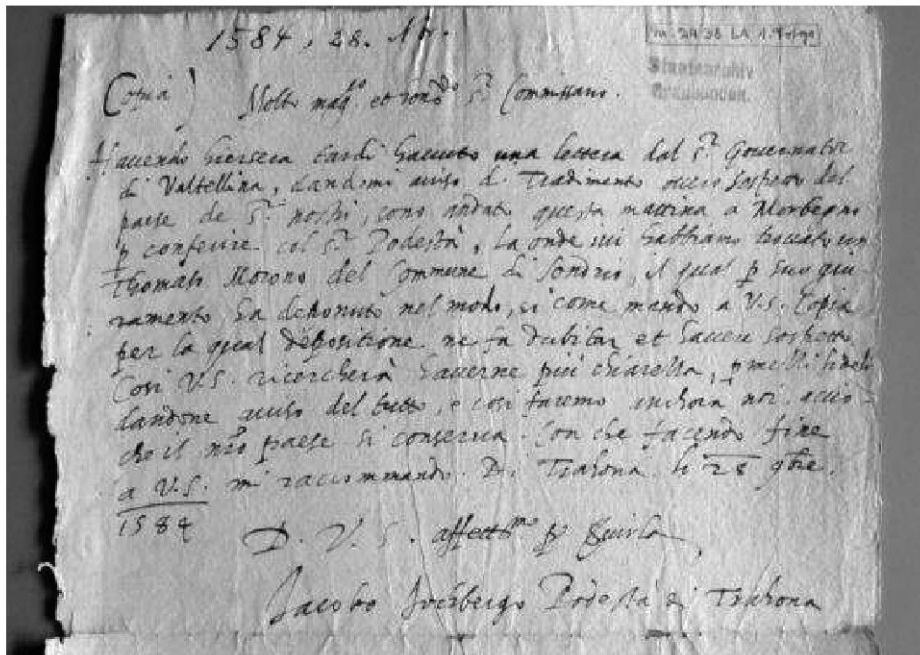 1584, 28. 
Copia) Molto mag.co et  S.r Commissario.
Havendo hiersera tardi havuto una lettera dal S.r Governator
di Valtellina, dandomi aviso di Tradimento  sospetto del
paese de S.ri nostri, sono andato questa mattina a Morbegno
p conferire col S.r Podestà, la onde ivi habbiamo trovato un
Thomaso Morono del Commune di Sondrio, il qual p suo giu-
ramento ha deponuto nel modo, si come mando a V.S. Copia
per la qual depositione ne fa dubitar et haver sospetto
Cosi V.S. ricercherà haverne più chiarezza, p 
dandone aviso del tutto, e cosi faremo anchora noi, accio-
che il nro paese si conserva. Con che facendo fine
a V.S. mi raccommando. Di Trahona li 28 9bre.
1584
D. V. S. affett.mo p 
Jacobo  Podestà di Trahona
Staatsarchiv
Graubünden.